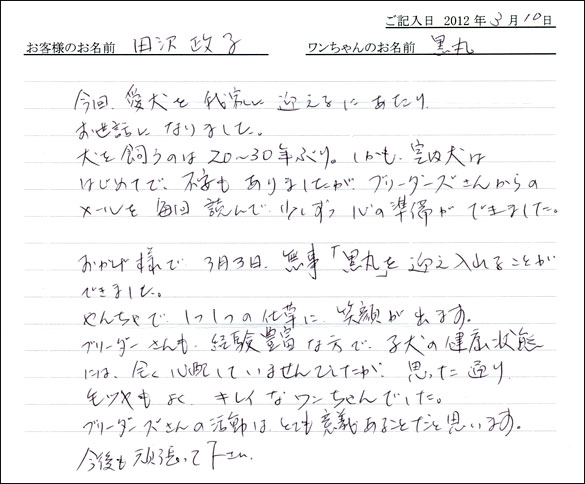 ご記入日 2012年3月10日
お客様のお名前 田沢 政子 ワンちゃんのお名前 黒丸
今回、愛犬を我家に迎えるにあたり
お世話になりました。
犬を飼うのは20〜30年ぶり。しかも、室内犬は
はじめてで、不安もありましたが、ブリーダーズさんからの
メールを毎回読んで、少しずつ心の準備ができました。
おかげ様で3月3日、無事「黒丸」を迎え入れることが
できました。
やんちゃで、1つ1つの仕草に笑顔が出ます。
ブリーダーさんも、経験豊富な方で、子犬の健康状態
には、全く心配していませんでしたが、思った通り
毛ツヤもよく、キレイなワンちゃんでした。
ブリーダーズさんの活動は、とても意義あることだと思います。
今後も頑張って下さい。